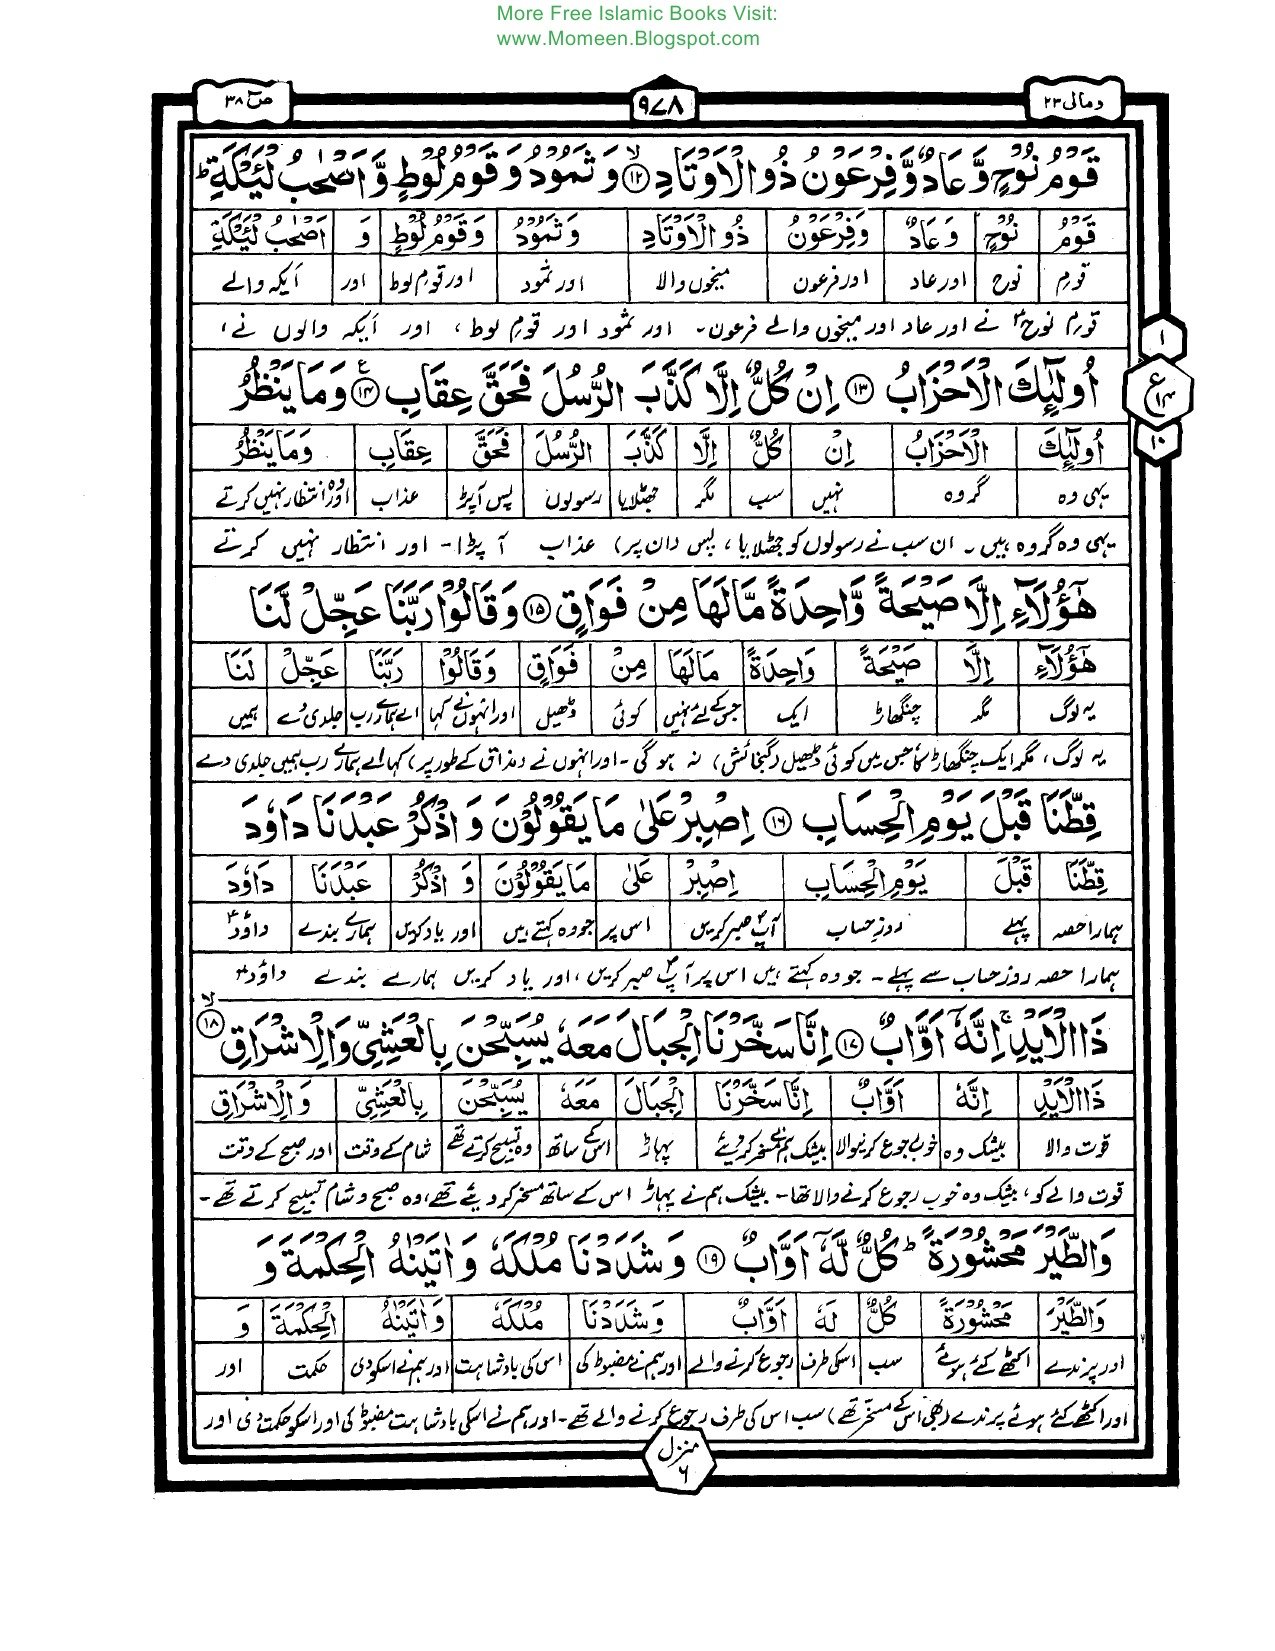 More Free Islamic Books Visit:
www.Momeen.Blogspot.com
ومالی ۲۳
۹۷۸
صٓ ۳۸
قَوۡمُ نُوۡحٍ وَّ عَادٌ وَّفِرۡعَوۡنُ ذُو الۡاَوۡتَادِ ﴿۱۲﴾ۙ وَ ثَمُوۡدُ وَ قَوۡمُ لُوۡطٍ وَّ اَصۡحٰبُ لۡـَٔیۡکَةِ ؕ
قَوۡمُ نُوۡحٍ وَّ عَادٌ وَّفِرۡعَوۡنُ ذُو الۡاَوۡتَادِ وَ ثَمُوۡدُ وَ قَوۡمُ لُوۡطٍ وَ اَصۡحٰبُ لۡـَٔیۡکَةِ
قومِ نوح اور عاد اور فرعون میخوں والا اور ثمود اور قومِ لوط اور اَیکہ والے
قومِ نوحؑ نے اور عاد اور میخوں والے فرعون۔ اور ثمود اور قومِ لوط، اور اَیکہ والوں نے،
اُولٰٓئِکَ الۡاَحۡزَابُ ﴿۱۳﴾ اِنۡ کُلٌّ اِلَّا کَذَّبَ الرُّسُلَ فَحَقَّ عِقَابِ ﴿۱۴﴾ وَ مَا یَنۡظُرُ
اُولٰٓئِکَ الۡاَحۡزَابُ اِنۡ کُلٌّ اِلَّا کَذَّبَ الرُّسُلَ فَحَقَّ عِقَابِ وَمَا یَنۡظُرُ
یہی وہ گروہ نہیں سب مگر جھٹلایا رسولوں پس آپڑا عذاب اور وہ انتظار نہیں کرتے
یہی وہ گروہ ہیں۔ ان سب نے رسولوں کو جھٹلایا، پس (ان پر) عذاب آ پڑا۔ اور انتظار نہیں کرتے
هٰۤؤُلَآءِ اِلَّا صَیۡحَةً وَّاحِدَةً مَّا لَهَا مِنۡ فَوَاقٍ ﴿۱۵﴾ وَ قَالُوۡا رَبَّنَا عَجِّلۡ لَّنَا
هٰۤؤُلَآءِ اِلَّا صَیۡحَةً وَّاحِدَةً مَا لَهَا مِنۡ فَوَاقٍ وَقَالُوۡا رَبَّنَا عَجِّلۡ لَنَا
یہ لوگ مگر چنگھاڑ ایک جس کے لئے نہیں کوئی ڈھیل اور انہوں نے کہا اے ہمارے رب جلدی دے ہمیں
یہ لوگ، مگر ایک چنگھاڑ کا جس میں کوئی ڈھیل (گنجائش) نہ ہو گی۔ اور انہوں نے (مذاق کے طور پر) کہا اے ہمارے رب ہمیں جلدی دے
قِطَّنَا قَبۡلَ یَوۡمِ الۡحِسَابِ ﴿۱۶﴾ اِصۡبِرۡ عَلٰی مَا یَقُوۡلُوۡنَ وَ اذۡکُرۡ عَبۡدَنَا دَاوٗدَ
قِطَّنَا قَبۡلَ یَوۡمِ الۡحِسَابِ اِصۡبِرۡ عَلٰی مَا یَقُوۡلُوۡنَ وَ اذۡکُرۡ عَبۡدَنَا دَاوٗدَ
ہمارا حصہ پہلے روزِ حساب آپؐ صبر کریں اس پر جو وہ کہتے ہیں اور یاد کریں ہمارے بندے داؤدؑ
ہمارا حصہ روز حساب سے پہلے۔ جو وہ کہتے ہیں اس پر آپؐ صبر کریں، اور یاد کریں ہمارے بندے داؤدؑ
ذَا الۡاَیۡدِ ۚ اِنَّهٗۤ اَوَّابٌ ﴿۱۷﴾ اِنَّا سَخَّرۡنَا الۡجِبَالَ مَعَهٗ یُسَبِّحۡنَ بِالۡعَشِیِّ وَالۡاِشۡرَاقِ ﴿۱۸﴾ۙ
ذَا الۡاَیۡدِ اِنَّهٗ اَوَّابٌ اِنَّا سَخَّرۡنَا الۡجِبَالَ مَعَهٗ یُسَبِّحۡنَ بِالۡعَشِیِّ وَالۡاِشۡرَاقِ
قوت والا بیشک وہ خوب رجوع کرنیوالا بیشک ہم نے مسخر کر دیئے پہاڑ اس کے ساتھ وہ تسبیح کرتے تھے شام کے وقت اور صبح کے وقت
قوت والے کو، بیشک وہ خوب رجوع کرنے والا تھا۔ بیشک ہم نے پہاڑ اس کے ساتھ مسخر کر دیئے تھے، وہ صبح و شام تسبیح کرتے تھے۔
وَالطَّیۡرَ مَحۡشُوۡرَةً ؕ کُلٌّ لَّهٗۤ اَوَّابٌ ﴿۱۹﴾ وَ شَدَدۡنَا مُلۡکَهٗ وَ اٰتَیۡنٰهُ الۡحِکۡمَةَ وَ
وَالطَّیۡرَ مَحۡشُوۡرَةً کُلٌّ لَهٗ اَوَّابٌ وَ شَدَدۡنَا مُلۡکَهٗ وَ اٰتَیۡنٰهُ الۡحِکۡمَةَ وَ
اور پرندے اکٹھے کئے ہوئے سب اسکی طرف رجوع کرنے والے اور ہم نے مضبوط کی اس کی بادشاہت اور ہم نے اسکو دی حکمت اور
اور اکٹھے کئے ہوئے پرندے (بھی اس کے مسخر تھے) سب اس کی طرف رجوع کرنے والے تھے۔ اور ہم نے اسکی بادشاہت مضبوط کی اور اسکو حکمت دی اور
۱
ع
۱۴
۱۰
منزل
۶